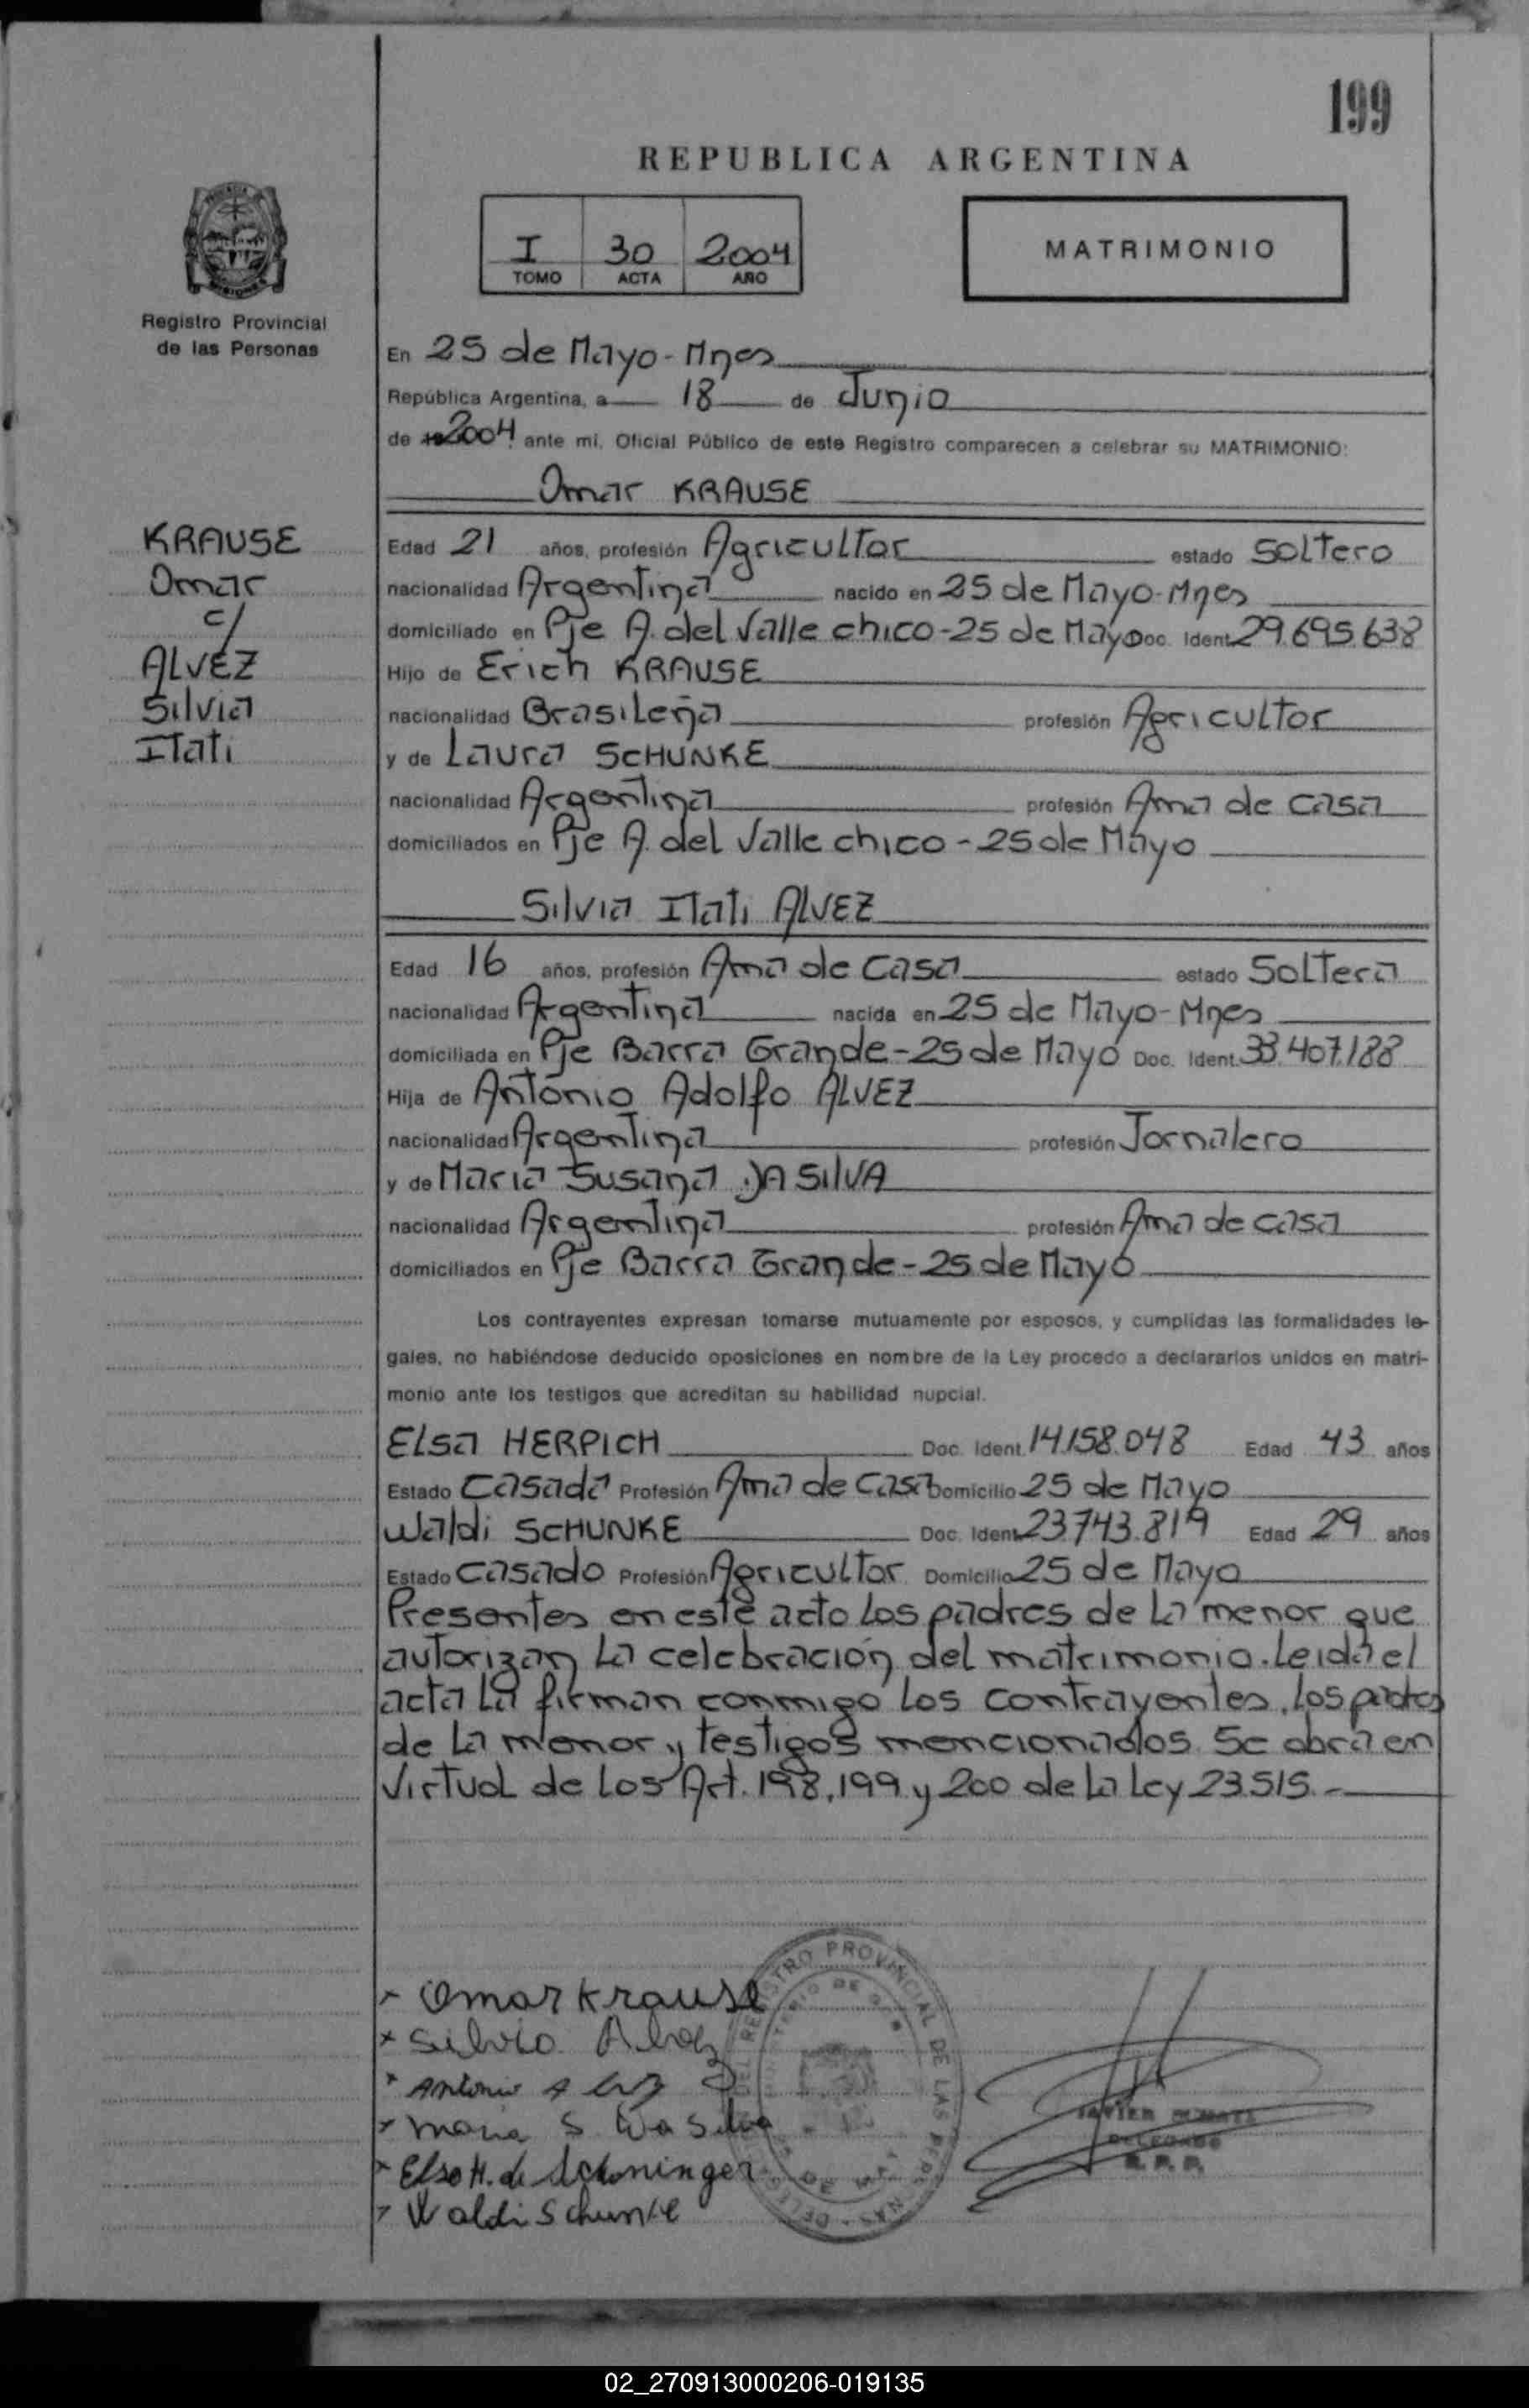 199
REPUBLICA ARGENTINA
I 30 2004
TOMO ACTA AÑO
MATRIMONIO
Registro Provincial
de las Personas
En 25 de Mayo - Mnes
República Argentina, a 18 de Junio
de 19 2004 ante mi, Oficial Público de este Registro comparecen a celebrar su MATRIMONIO:
Omar KRAUSE
KRAUSE
Omar
c/
ALVEZ
Silvia
Itati
Edad 21 años, profesión Agricultor estado Soltero
nacionalidad Argentina nacido en 25 de Mayo - Mnes
domiciliado en Pje A. del Valle chico - 25 de Mayo Doc. Ident. 29.695.638
Hijo de Erich KRAUSE
nacionalidad Brasileña profesión Agricultor
y de Laura SCHUNKE
nacionalidad Argentina profesión Ama de casa
domiciliados en Pje A. del Valle chico - 25 de Mayo
Silvia Itati ALVEZ
Edad 16 años, profesión Ama de Casa estado Soltera
nacionalidad Argentina nacida en 25 de Mayo - Mnes
domiciliada en Pje Barra Grande - 25 de Mayo Doc. Ident. 33.407.188
Hija de Antonio Adolfo ALVEZ
nacionalidad Argentina profesión Jornalero
y de Maria Susana DA SILVA
nacionalidad Argentina profesión Ama de casa
domiciliados en Pje Barra Grande - 25 de Mayo
Los contrayentes expresan tomarse mutuamente por esposos, y cumplidas las formalidades le-
gales, no habiéndose deducido oposiciones en nombre de la Ley procedo a declararlos unidos en matri-
monio ante los testigos que acreditan su habilidad nupcial.
Elsa HERPICH Doc. Ident. 14.158.048 Edad 43 años
Estado Casada Profesión Ama de Casa Domicilio 25 de Mayo
Waldi SCHUNKE Doc. Ident. 23.743.819 Edad 29 años
Estado Casado Profesión Agricultor Domicilio 25 de Mayo
Presentes en este acto los padres de la menor que
autorizan la celebración del matrimonio. Leida el
acta la firman conmigo los contrayentes, los padres
de la menor y testigos mencionados. Se obra en
Virtud de los Art. 198, 199 y 200 de la Ley 23.515.-
x Omar Krause
x Silvia Alvez
x Antonio A
x Maria S Da Silva
x Elsa H. de Schoninger
x Waldi Schunke
REGISTRO PROVINCIAL DE LAS PERSONAS
JAVIER
DELEGADO
R. P. P.
02_270913000206-019135